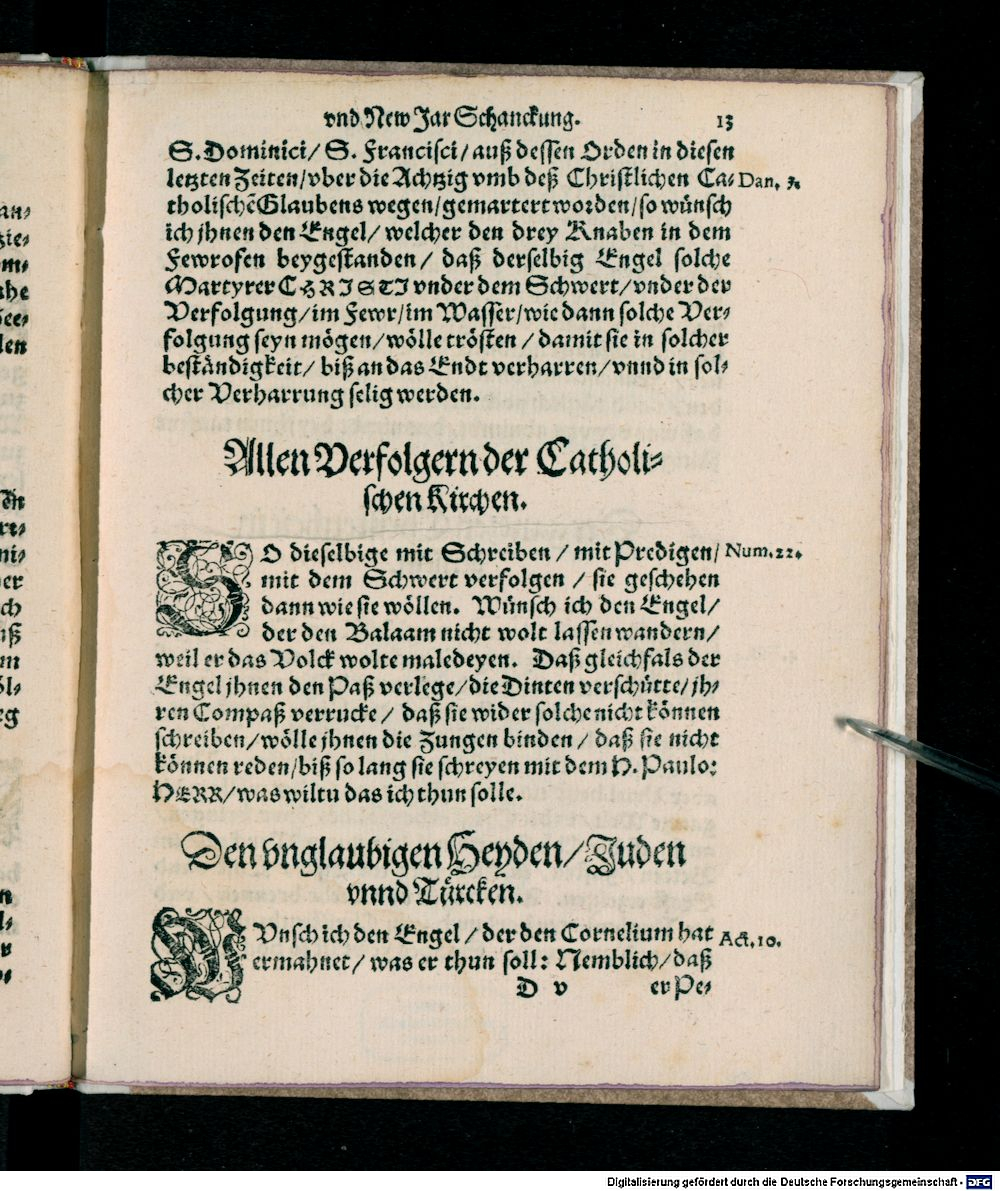 vnd New Jar Schanckung. 13
S. Dominici/ S. Francisci/ auß dessen Orden in diesen
letzten Zeiten/ vber die Achtzig vmb deß Christlichen Ca- Dan. 3.
tholischẽ Glaubens wegen/ gemartert worden/ so wünsch
ich jhnen den Engel/ welcher den drey Knaben in dem
Fewrofen beygestanden/ daß derselbig Engel solche
Martyrer CHRISTI vnder dem Schwert/ vnder der
Verfolgung/ im Fewr/ im Wasser/ wie dann solche Ver-
folgung seyn mögen/ wölle trösten/ damit sie in solcher
beständigkeit/ biß an das Endt verharren/ vnnd in sol-
cher Verharrung selig werden.
Allen Verfolgern der Catholi-
schen Kirchen.
SO dieselbige mit Schreiben/ mit Predigen/ Num. 22.
mit dem Schwert verfolgen/ sie geschehen
dann wie sie wöllen. Wünsch ich den Engel/
der den Balaam nicht wolt lassen wandern/
weil er das Volck wolte maledeyen. Daß gleichfals der
Engel jhnen den Paß verlege/ die Dinten verschütte/ jh-
ren Compaß verrucke/ daß sie wider solche nicht können
schreiben/ wölle jhnen die Zungen binden/ daß sie nicht
können reden/ biß so lang sie schreyen mit dem H. Paulo:
HERR/ was wiltu das ich thun solle.
Den vnglaubigen Heyden/ Juden
vnnd Türcken.
WVnsch ich den Engel/ der den Cornelium hat Act. 10.
ermahnet/ was er thun soll: Nemblich/ daß
D v er Pe-
Digitalisierung gefördert durch die Deutsche Forschungsgemeinschaft - DFG